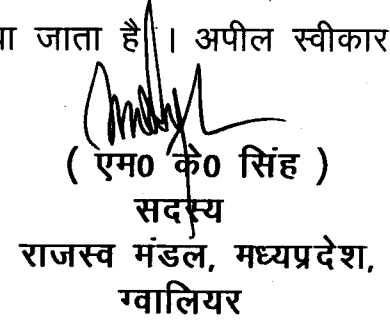 या जाता है । अपील स्वीकार
( एम0 के0 सिंह )
सदस्य
राजस्व मंडल, मध्यप्रदेश,
ग्वालियर